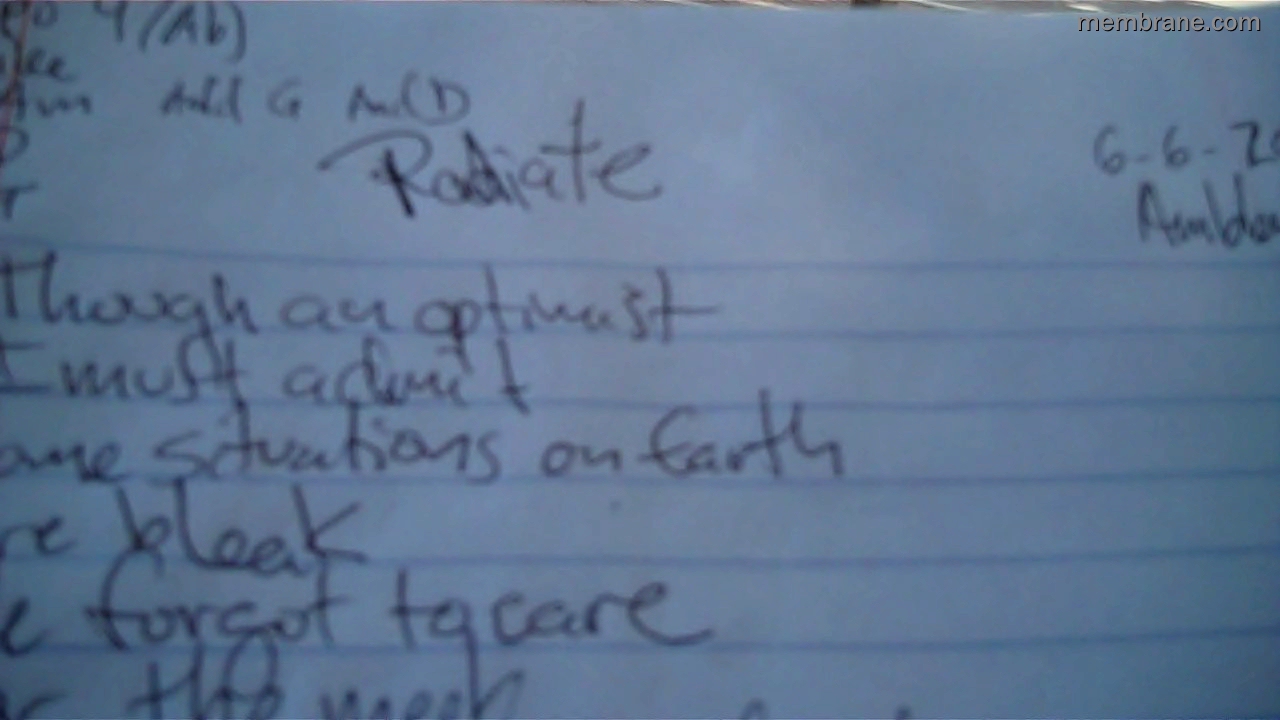 membrane.com
4 (Ab)
And G And D
Radiate
6-6-20
Though an optimist
I must admit
ome situations on Earth
re bleak
e forgot to care
the meek